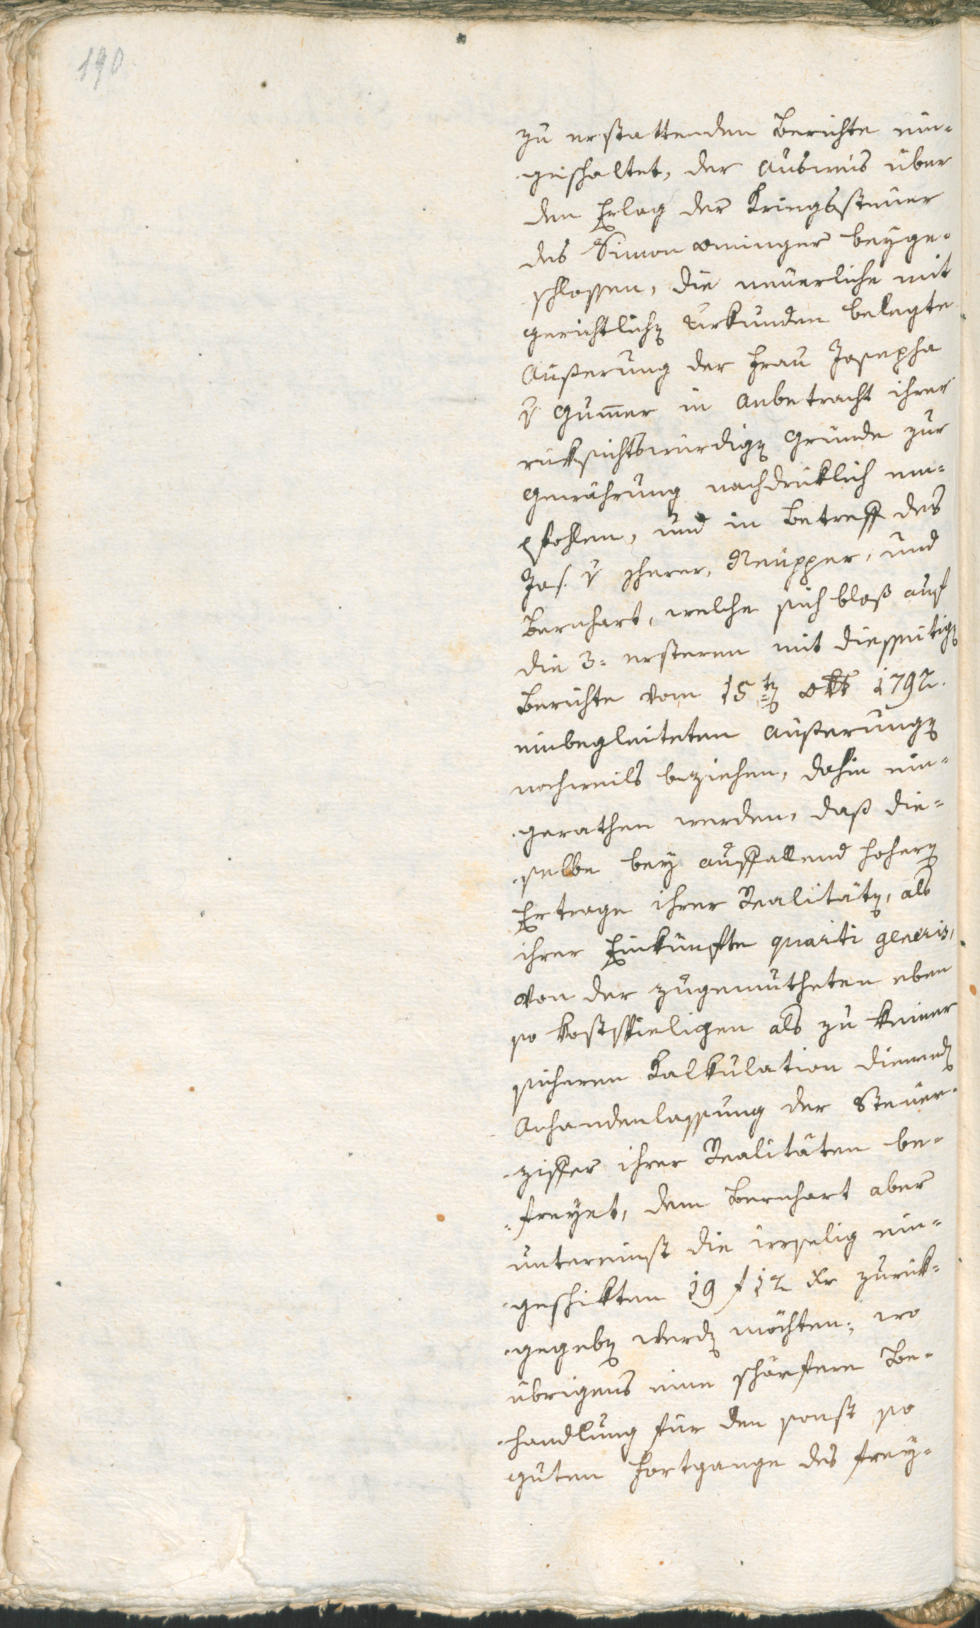 190
zu erstattenden Berichte ein-
geschaltet, der Ausweis über
den Erlag der Kriegssteuer
des Simon Ominger beyge-
schlossen, die neuerliche mit
gerichtlichen Urkunden belegte
Äußerung der Frau Josepha
v Gumer in Anbetracht ihrer
rüksichtswürdigen Gründe zur
Gewährung nachdrüklich em-
pfohlen, und in Betreff des
Jos. v Zherer, Neupper, und
Bernhart, welche sich bloß auf
die 3. ersteren mit diesseitigen
Berichte vom 15ten Okt 1792.
einbegleiteten Äußerungen
nochweils beziehen, dahin ein-
gerathen werden, daß die-
selbe bey auffallend hohern
Ertrage ihrer Realitäten, als
ihrer Einkünfte quarti generis,
von der zugemutheten eben
so kostspieligen als zu keiner
sicheren Kalkulation dienenden
Anhandenlassung der Steuer-
ziffer ihrer Realitäten be-
freyet, dem Bernhart aber
untereinst die irrselig ein-
geschikten 19 f 12 xr zurük-
gegeben werden möchten; wo
übrigens eine schärfere Be-
handlung für den sonst so
guten Fortgange des frey-